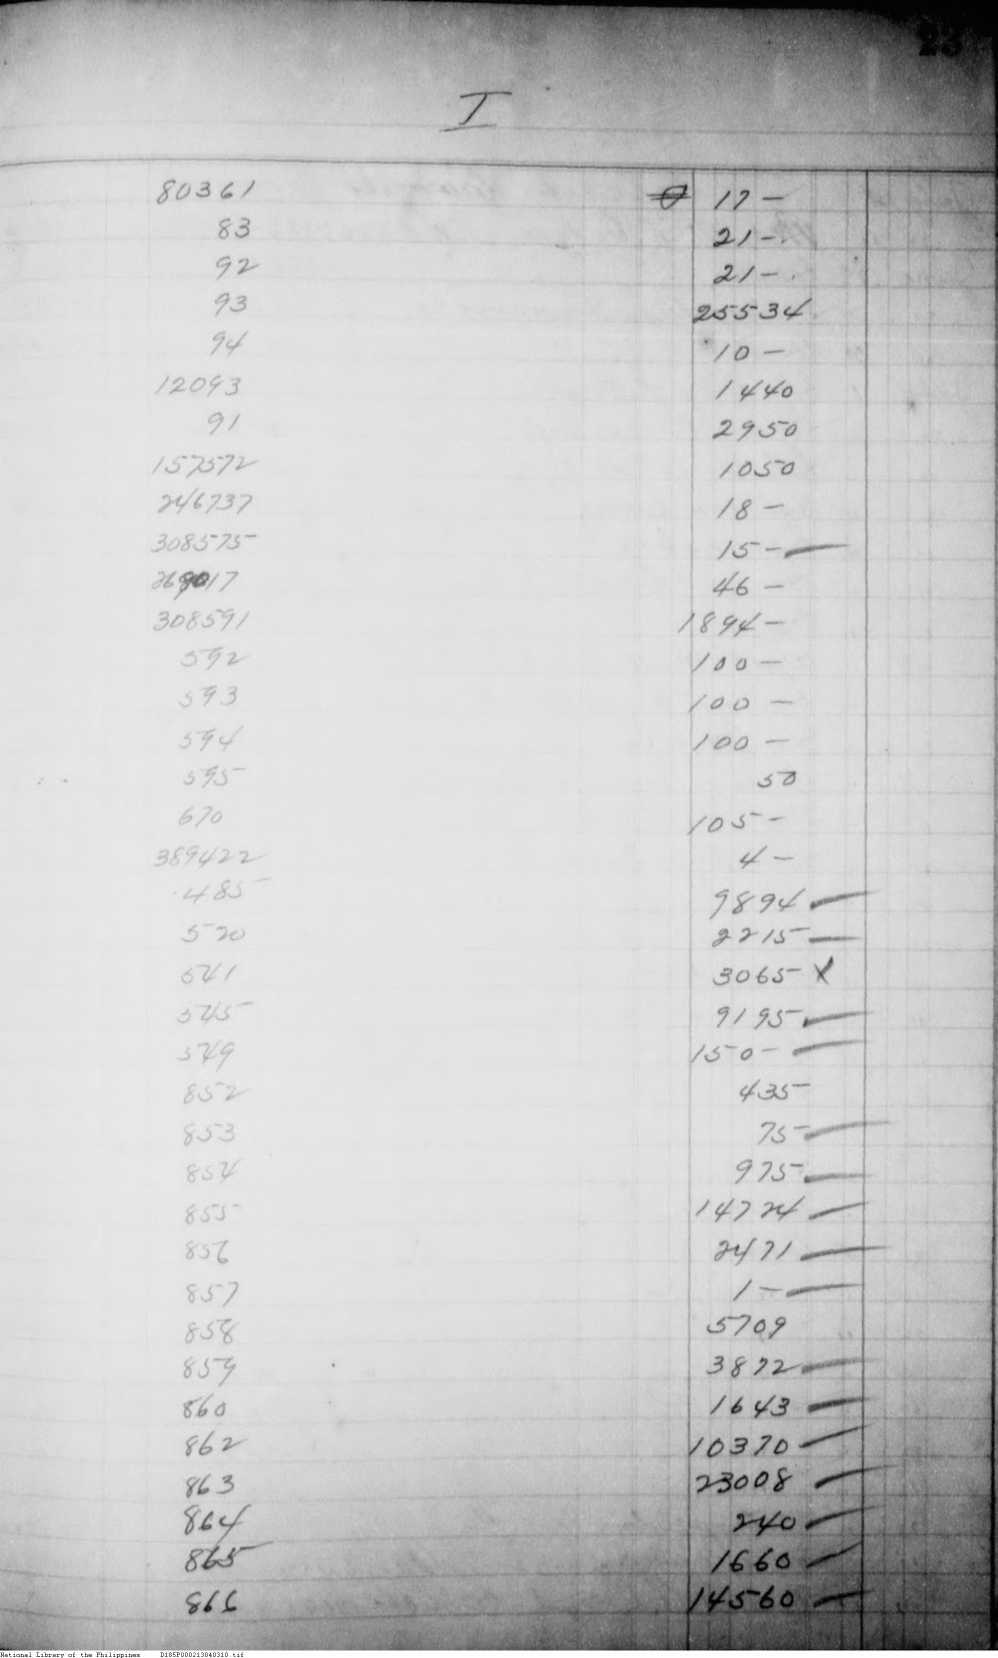 23
I
80361 0 17 —
83 21 —
92 21 —
93 25534
94 10 —
12093 1440
91 2950
157572 1050
246737 18 —
308575 15 —
17 46 —
308591 1894 —
592 100 —
593 100 —
594 100 —
595 50
670 105 —
389422 4 —
485 9894
520 2215
541 3065 x
545 9195
549 150 —
852 435
853 75
854 975
855 14724
856 2471
857 1 —
858 5709
859 3872
860 1643
862 10370
863 23008
864 240
865 1660
866 14560
National Library of the Philippines D185P000213040310.tif